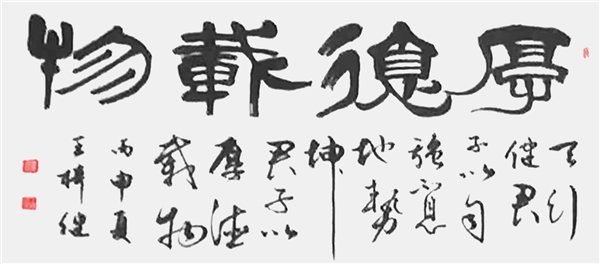 厚德載物
天行
健君
子以自
强不息
地勢
坤
君子以
厚德
載物
丙申夏
王